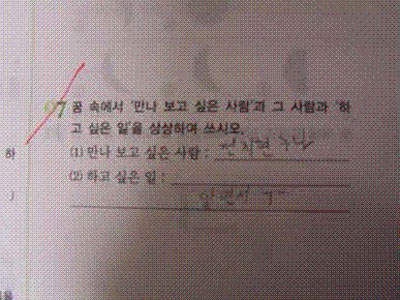 07 꿈 속에서 '만나 보고 싶은 사람'과 그 사람과 '하
고 싶은 일'을 상상하여 쓰시오.
(1) 만나 보고 싶은 사람 : 전지현 누나
(2) 하고 싶은 일 :
알면서 ㅋㅋ
하